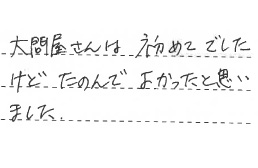 大問屋さんは 初めてでした
けど たのんで よかったと思い
ました.